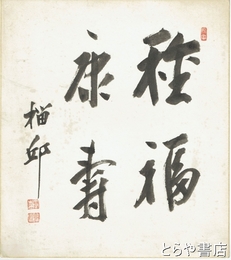 種福
康寿
楢邨
とらや書店